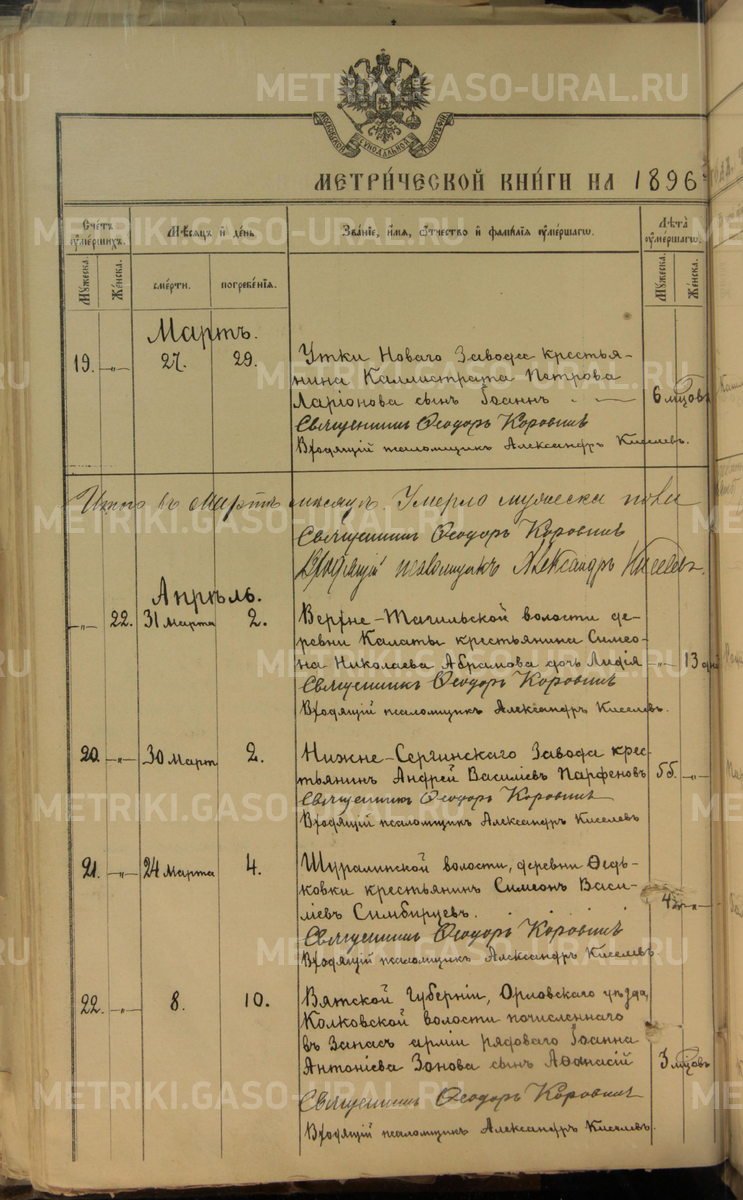 METRIKI.GASO-URAL.RU
МОСКОВСКОЙ СѴНОДАЛЬНОЙ ТИПОГРАФІИ
МЕТРИ́ЧЕСКОЙ КНИ́ГИ НА 1896
Сче́тъ ᲂу҆ме́ршихъ.
Мѣ́сяцъ и҆ де́нь
Зва́нїе, и҆́мя, ѻ҆́тчество и҆ фамилїя ᲂу҆ме́ршагѡ.
Лѣ́та ᲂу҆ме́ршагѡ.
Му́жеска.
Же́нска.
сме́рти.
погребе́нїя.
Му́жеска.
Же́нска.
Мартъ.
19. —„— 27. 29. Утки Новаго Завода крестья-
нина Каллистрата Петрова
Ларіонова сынъ Іоаннъ 6 мѣцовъ
Священникъ Ѳеодоръ Коровинъ
Входящій псаломщикъ Александръ Киселевъ.
Итого въ Мартѣ мѣсяцѣ. Умерло мужеска пола
Священникъ Ѳеодоръ Коровинъ
Входящій псаломщикъ Александръ Киселевъ.
Апрѣль.
—„— 22. 31 Марта 2. Верхне-Тагильской волости де-
ревни Калаты крестьянина Симео-
на Николаева Абрамова дочь Лидія —„— 13 дн
Священникъ Ѳеодоръ Коровинъ
Входящій псаломщикъ Александръ Киселевъ.
20. —„— 30 Март 2. Нижне-Сергинскаго Завода крес-
тьянинъ Андрей Василіевъ Парфеновъ 55. —„—
Священникъ Ѳеодоръ Коровинъ
Входящій псаломщикъ Александръ Киселевъ
21. —„— 24 Марта 4. Шуралинской волости, деревни Ѳедь-
ковки крестьянинъ Симеонъ Васи-
ліевъ Симбирцевъ. —„—
Священникъ Ѳеодоръ Коровинъ
Входящій псаломщикъ Александръ Киселевъ
22. —„— 8. 10. Вятской Губерніи, Орловскаго уѣзда,
Колковской волости почисленнаго
въ Запасъ арміи рядоваго Іоанна
Антоніева Зонова сынъ Аѳанасій 3 мѣцовъ
Священникъ Ѳеодоръ Коровинъ
Входящій псаломщикъ Александръ Киселевъ.